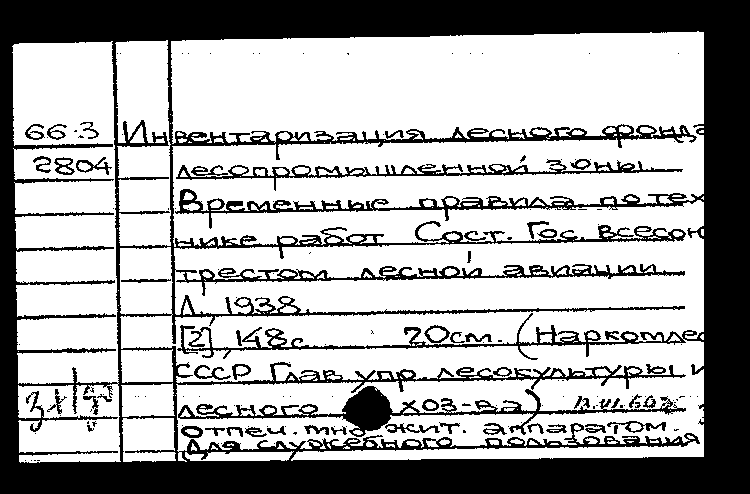 66.3 Инвентаризация лесного фонда
2804 лесопромышленной зоны.
Временные правила по тех
нике работ Сост. Гос. всесою
трестом лесной авиации
Л., 1938.
[2], 148с. 20см. (Наркомлес
СССР Глав упр. лесокультуры и
лесного хоз-ва)
Отпеч. мно жит. аппаратом.
Для служебного пользования